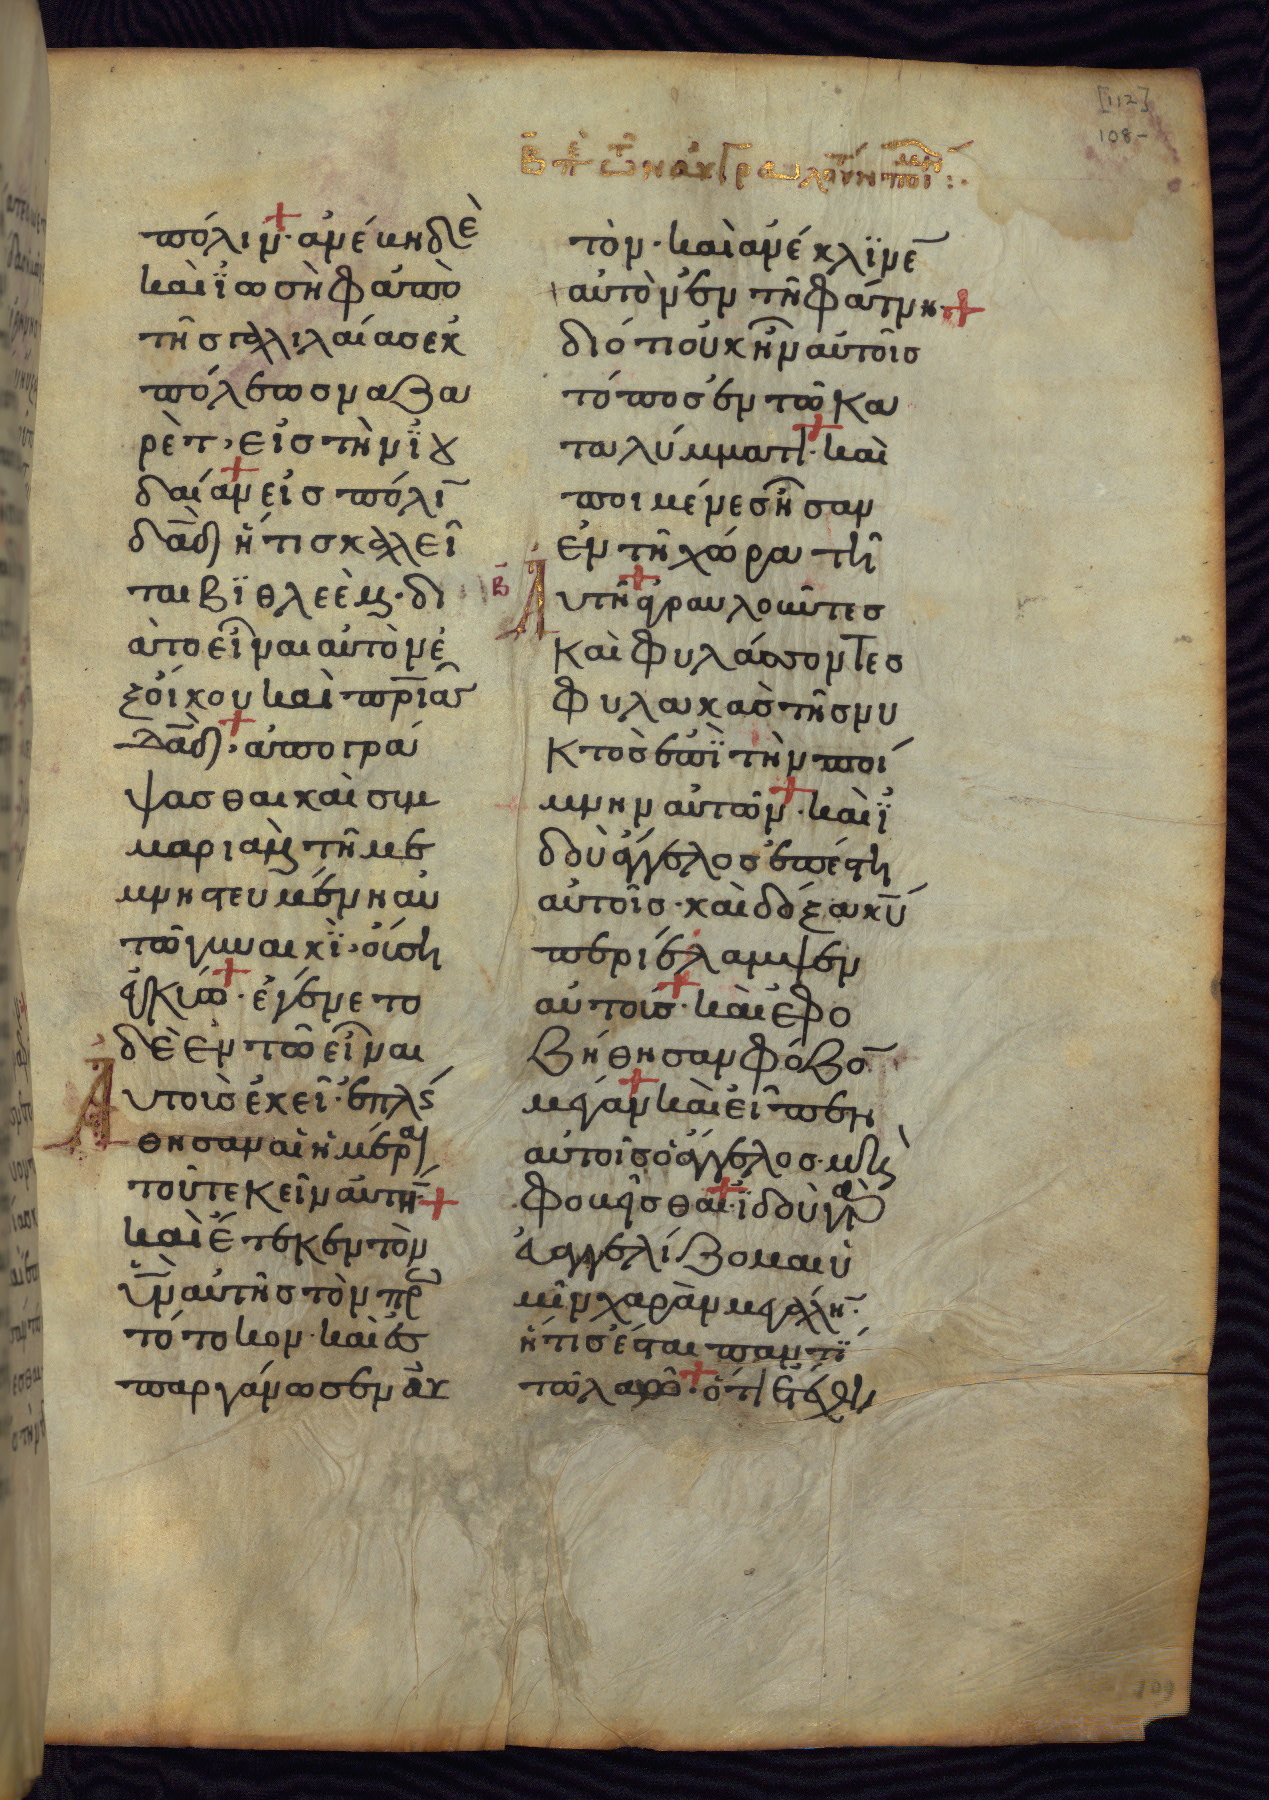 [112]
108-
πόλιν· ἀνέβη δὲ
καὶ ϊωσὴφ ἀπὸ
τῆς γαλιλαίας ἐκ
πόλεως ναζα
ρὲτ, εἰς τὴν ϊου
δαίαν εἰς πόλῑ
δᾱδ ἥτις καλεῖ
ται βϊθλεὲμ· δι
ὰ τὸ εἶναι αὐτὸν ἐ
ξ οἴκου καὶ πρ̄ιᾶσ
δᾱδ, ἀπογρά
ψασθαι καὶ σὺν
μαριὰμ τῆ με
μνηστευμένη αὐ
τῶ γυναικὶ, οὔση
ἐγκύω· ἐγένετο
δὲ ἐν τῶ εἶναι
Αὐτοὺς ἐκεῖ· ἐπλή
σθησαν αἱ ἡμέραι
τοῦ τεκεῖν αὐτήν·
καὶ ἔτεκεν τὸν
ῡν αὐτῆς τὸν πρ
τότοκον· καὶ ἐσ
παργάνωσεν αὐ
τὸν· καὶ ἀνέκλϊνε̄
αὐτὸν ἐν τῆ φάτνη·
διότι οὐκ ἦν αὐτοῖς
τόπος ἐν τῶ κα
ταλύμματι· καὶ
ποιμένες ἦσαν
ἐν τῆ χώρα τῆ
β̄
Αὐτῆ ἀγραυλοῦντες
καὶ φυλάσσοντες
φυλακὰς τῆς νυ
κτὸς ἐπὶ τὴν ποί
μνην αὐτῶν· καὶ ἰ
δοὺ ἄγγελος ἐπέστη
αὐτοῖς· καὶ δόξα κ̄υ
περιέλαμψεν
αὐτοὺς· καὶ ἐφο
βήθησαν φόβο̄
μέγαν καὶ εἶπεν
αὐτοῖς ὁ ἄγγελος· μὴ
φοβεῖσθαι· ϊδοὺ γὰρ
εὐαγγελίζομαι ὑ
μῖν χαρὰν μεγάλην·
ἥτις ἔσται παντὶ
τῶ λαῶ· ὅτι ἐτέχθη
109